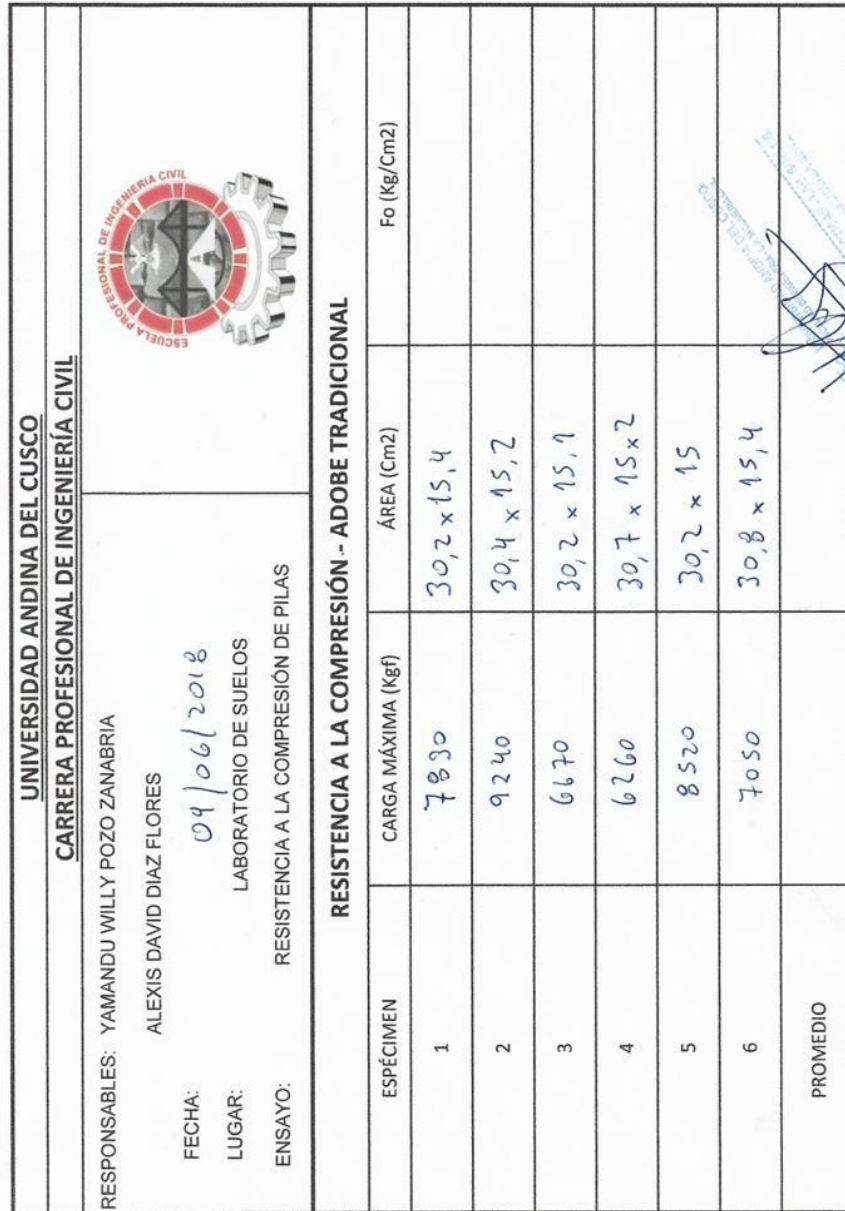 UNIVERSIDAD ANDINA DEL CUSCO
CARRERA PROFESIONAL DE INGENIERÍA CIVIL
RESPONSABLES: YAMANDU WILLY POZO ZANABRIA
ALEXIS DAVID DIAZ FLORES
FECHA: 09/06/2018
LUGAR: LABORATORIO DE SUELOS
ENSAYO: RESISTENCIA A LA COMPRESIÓN DE PILAS
ESCUELA PROFESIONAL DE INGENIERIA CIVIL
RESISTENCIA A LA COMPRESIÓN - ADOBE TRADICIONAL
ESPÉCIMEN CARGA MÁXIMA (Kgf) ÁREA (Cm2) Fo (Kg/Cm2)
1 7830 30,2 x 15,4
2 9240 30,4 x 15,2
3 6670 30,2 x 15,1
4 6260 30,7 x 15x2
5 8520 30,2 x 15
6 7050 30,8 x 15,4
PROMEDIO
ANDINA DEL CUSCO